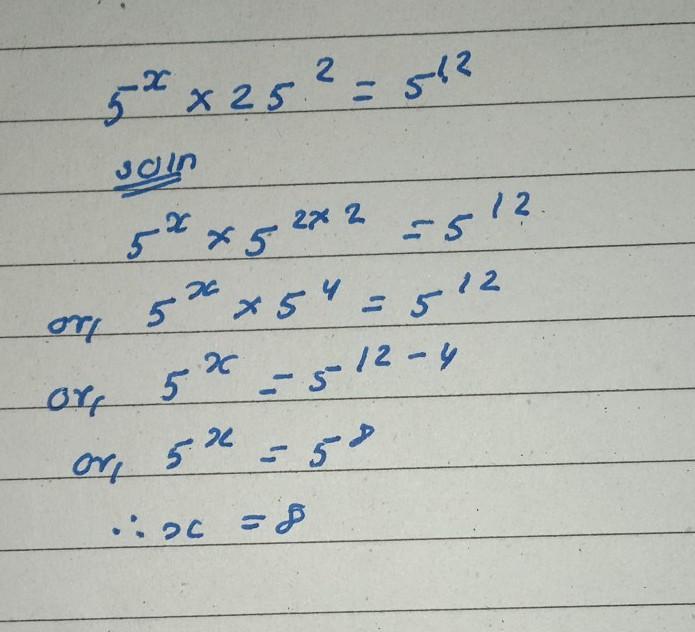 5^x × 25^2 = 5^12
soln
5^x × 5^2×2 = 5^12
or, 5^x × 5^4 = 5^12
or, 5^x = 5^12-4
or, 5^x = 5^8
∴ x = 8